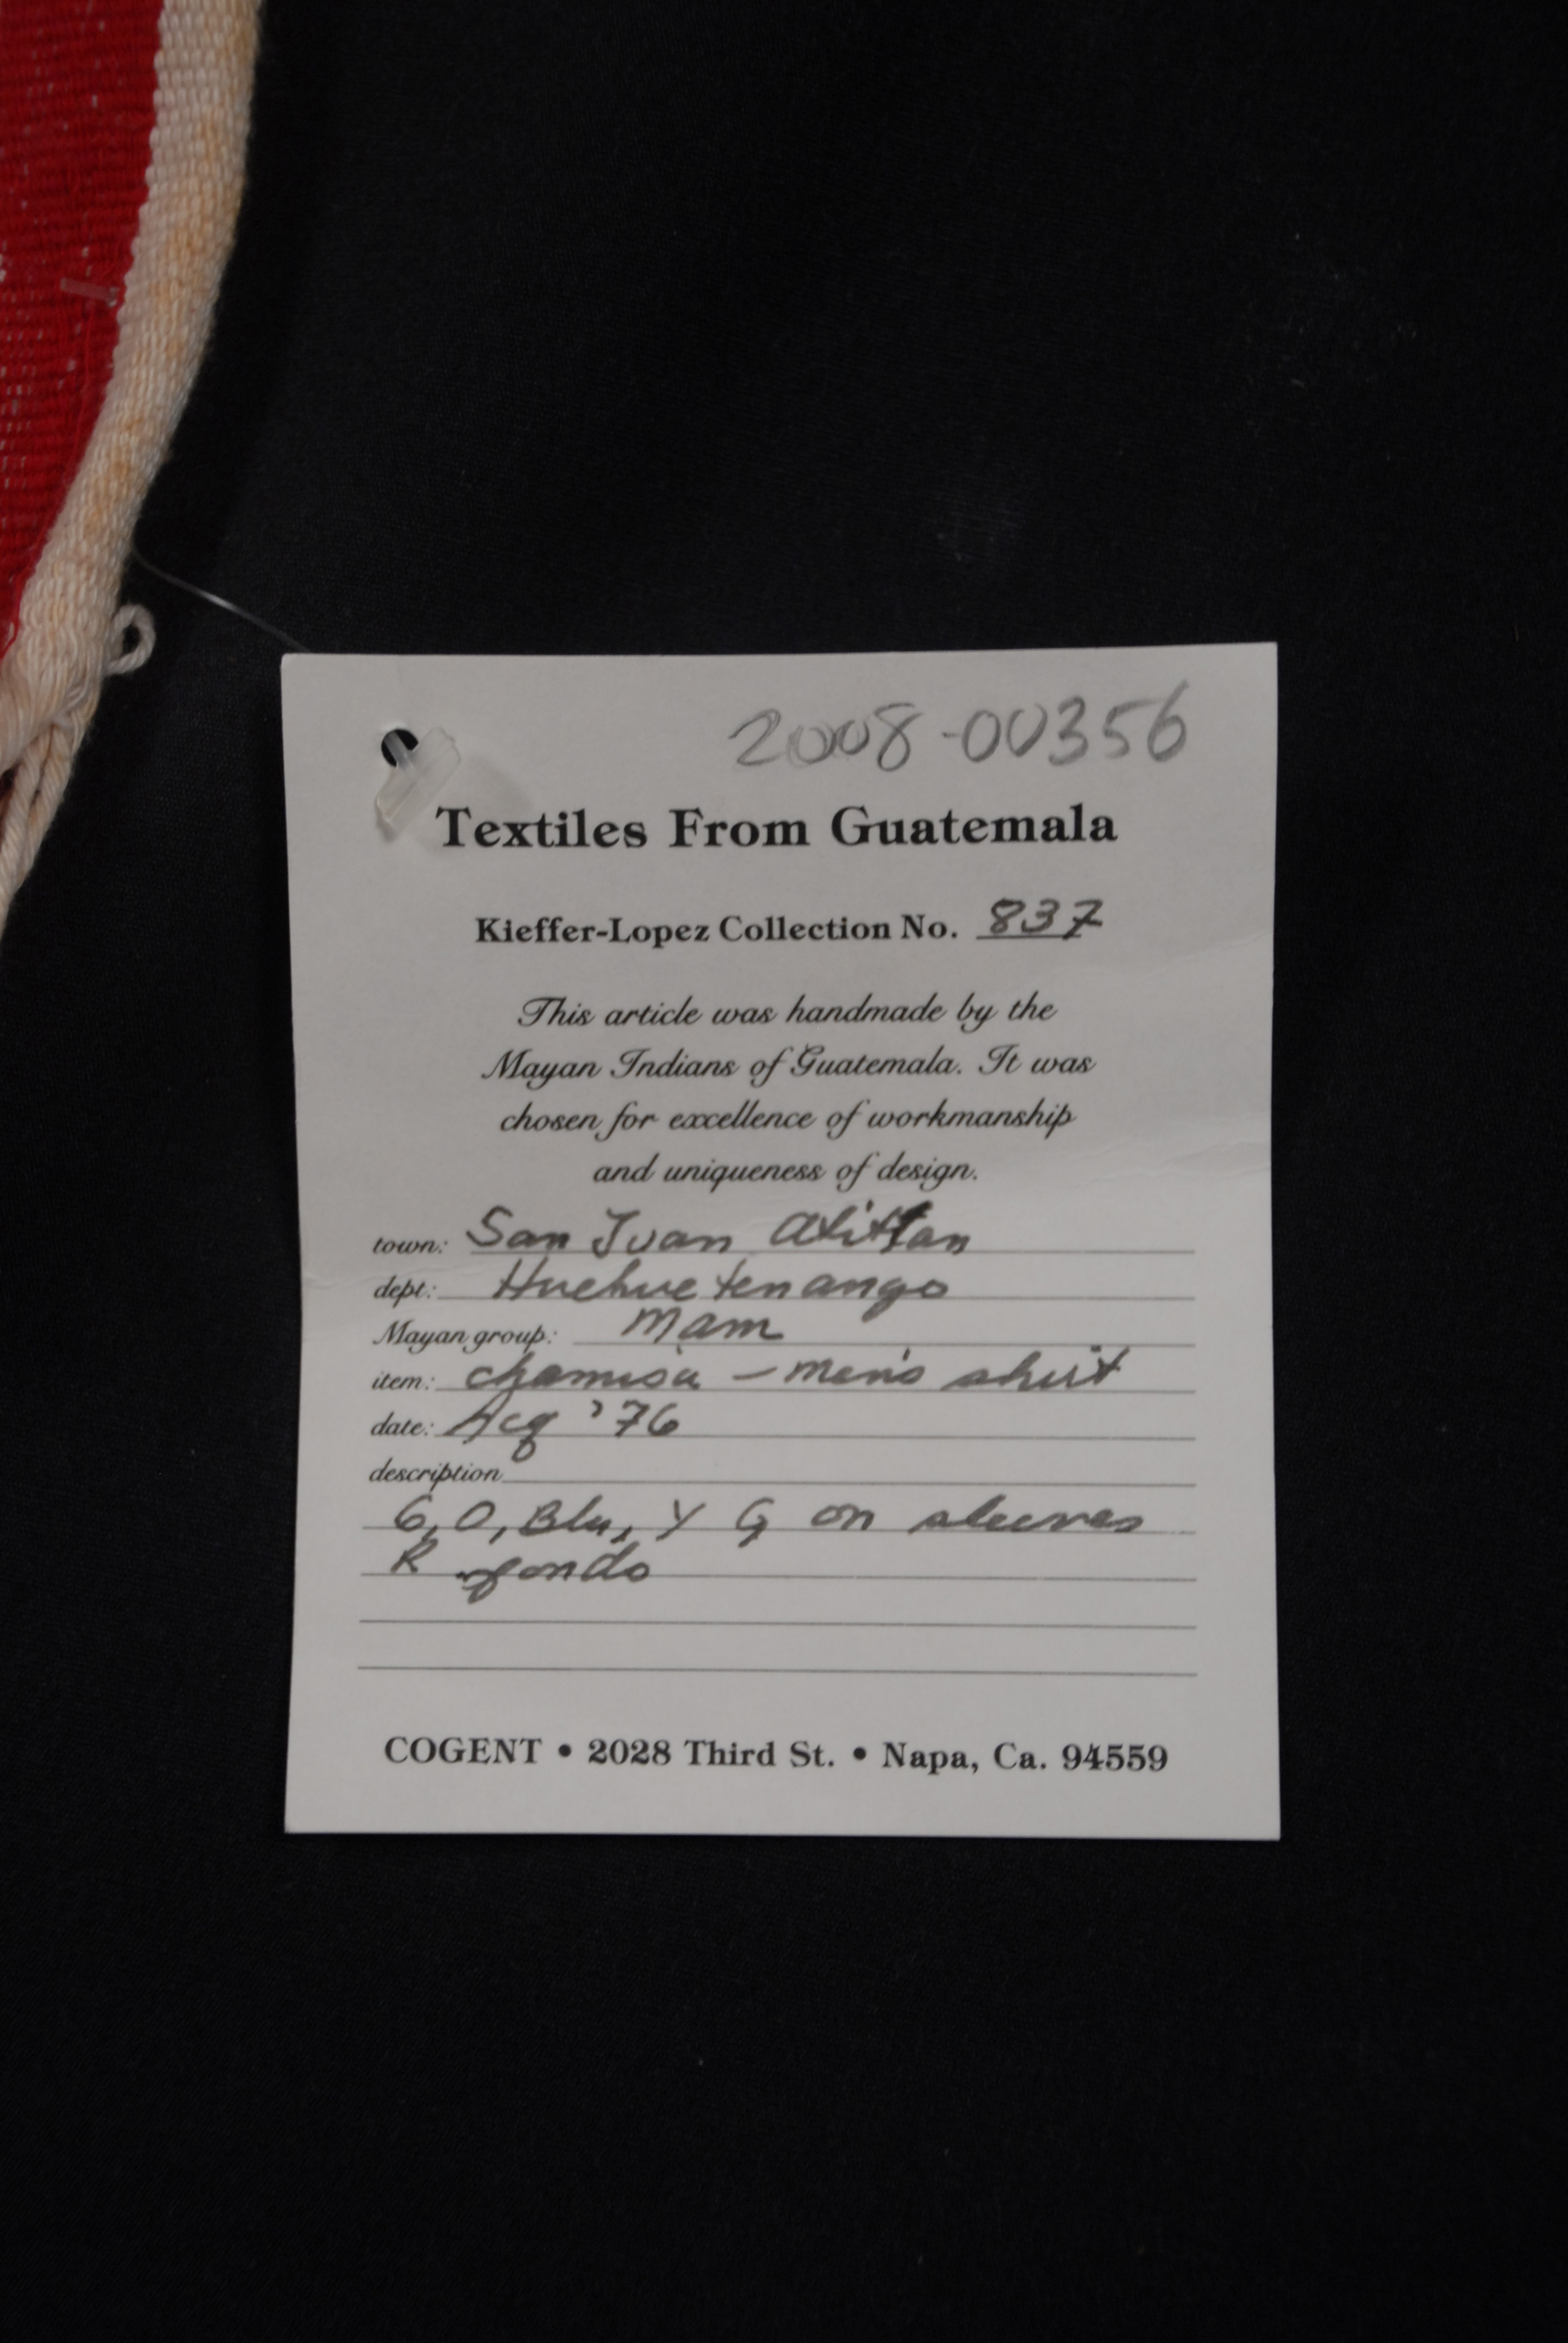 2008-00356
Textiles From Guatemala
Kieffer-Lopez Collection No. 837
This article was handmade by the
Mayan Indians of Guatemala. It was
chosen for excellence of workmanship
and uniqueness of design.
town: San Juan Atittan
dept: Huehuetenango
Mayan group: Mam
item: chamisa - men's shirt
date: Acq '76
description
G, O, Blu, Y G on sleeves
R fondo
COGENT • 2028 Third St. • Napa, Ca. 94559